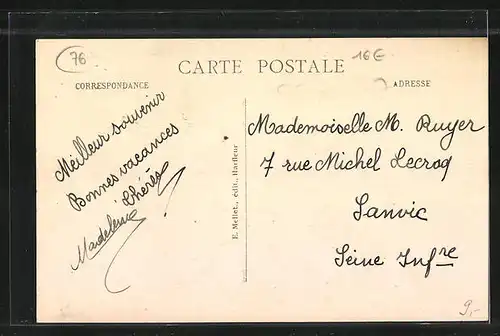 76
16E
CARTE POSTALE
CORRESPONDANCE
ADRESSE
Meilleur souvenir
Bonnes vacances
Madeleine
E. Mellet, édit., Harfleur
Mademoiselle M. Ruyer
7 rue Michel Lecroq
Sanvic
Seine Infre
9,-